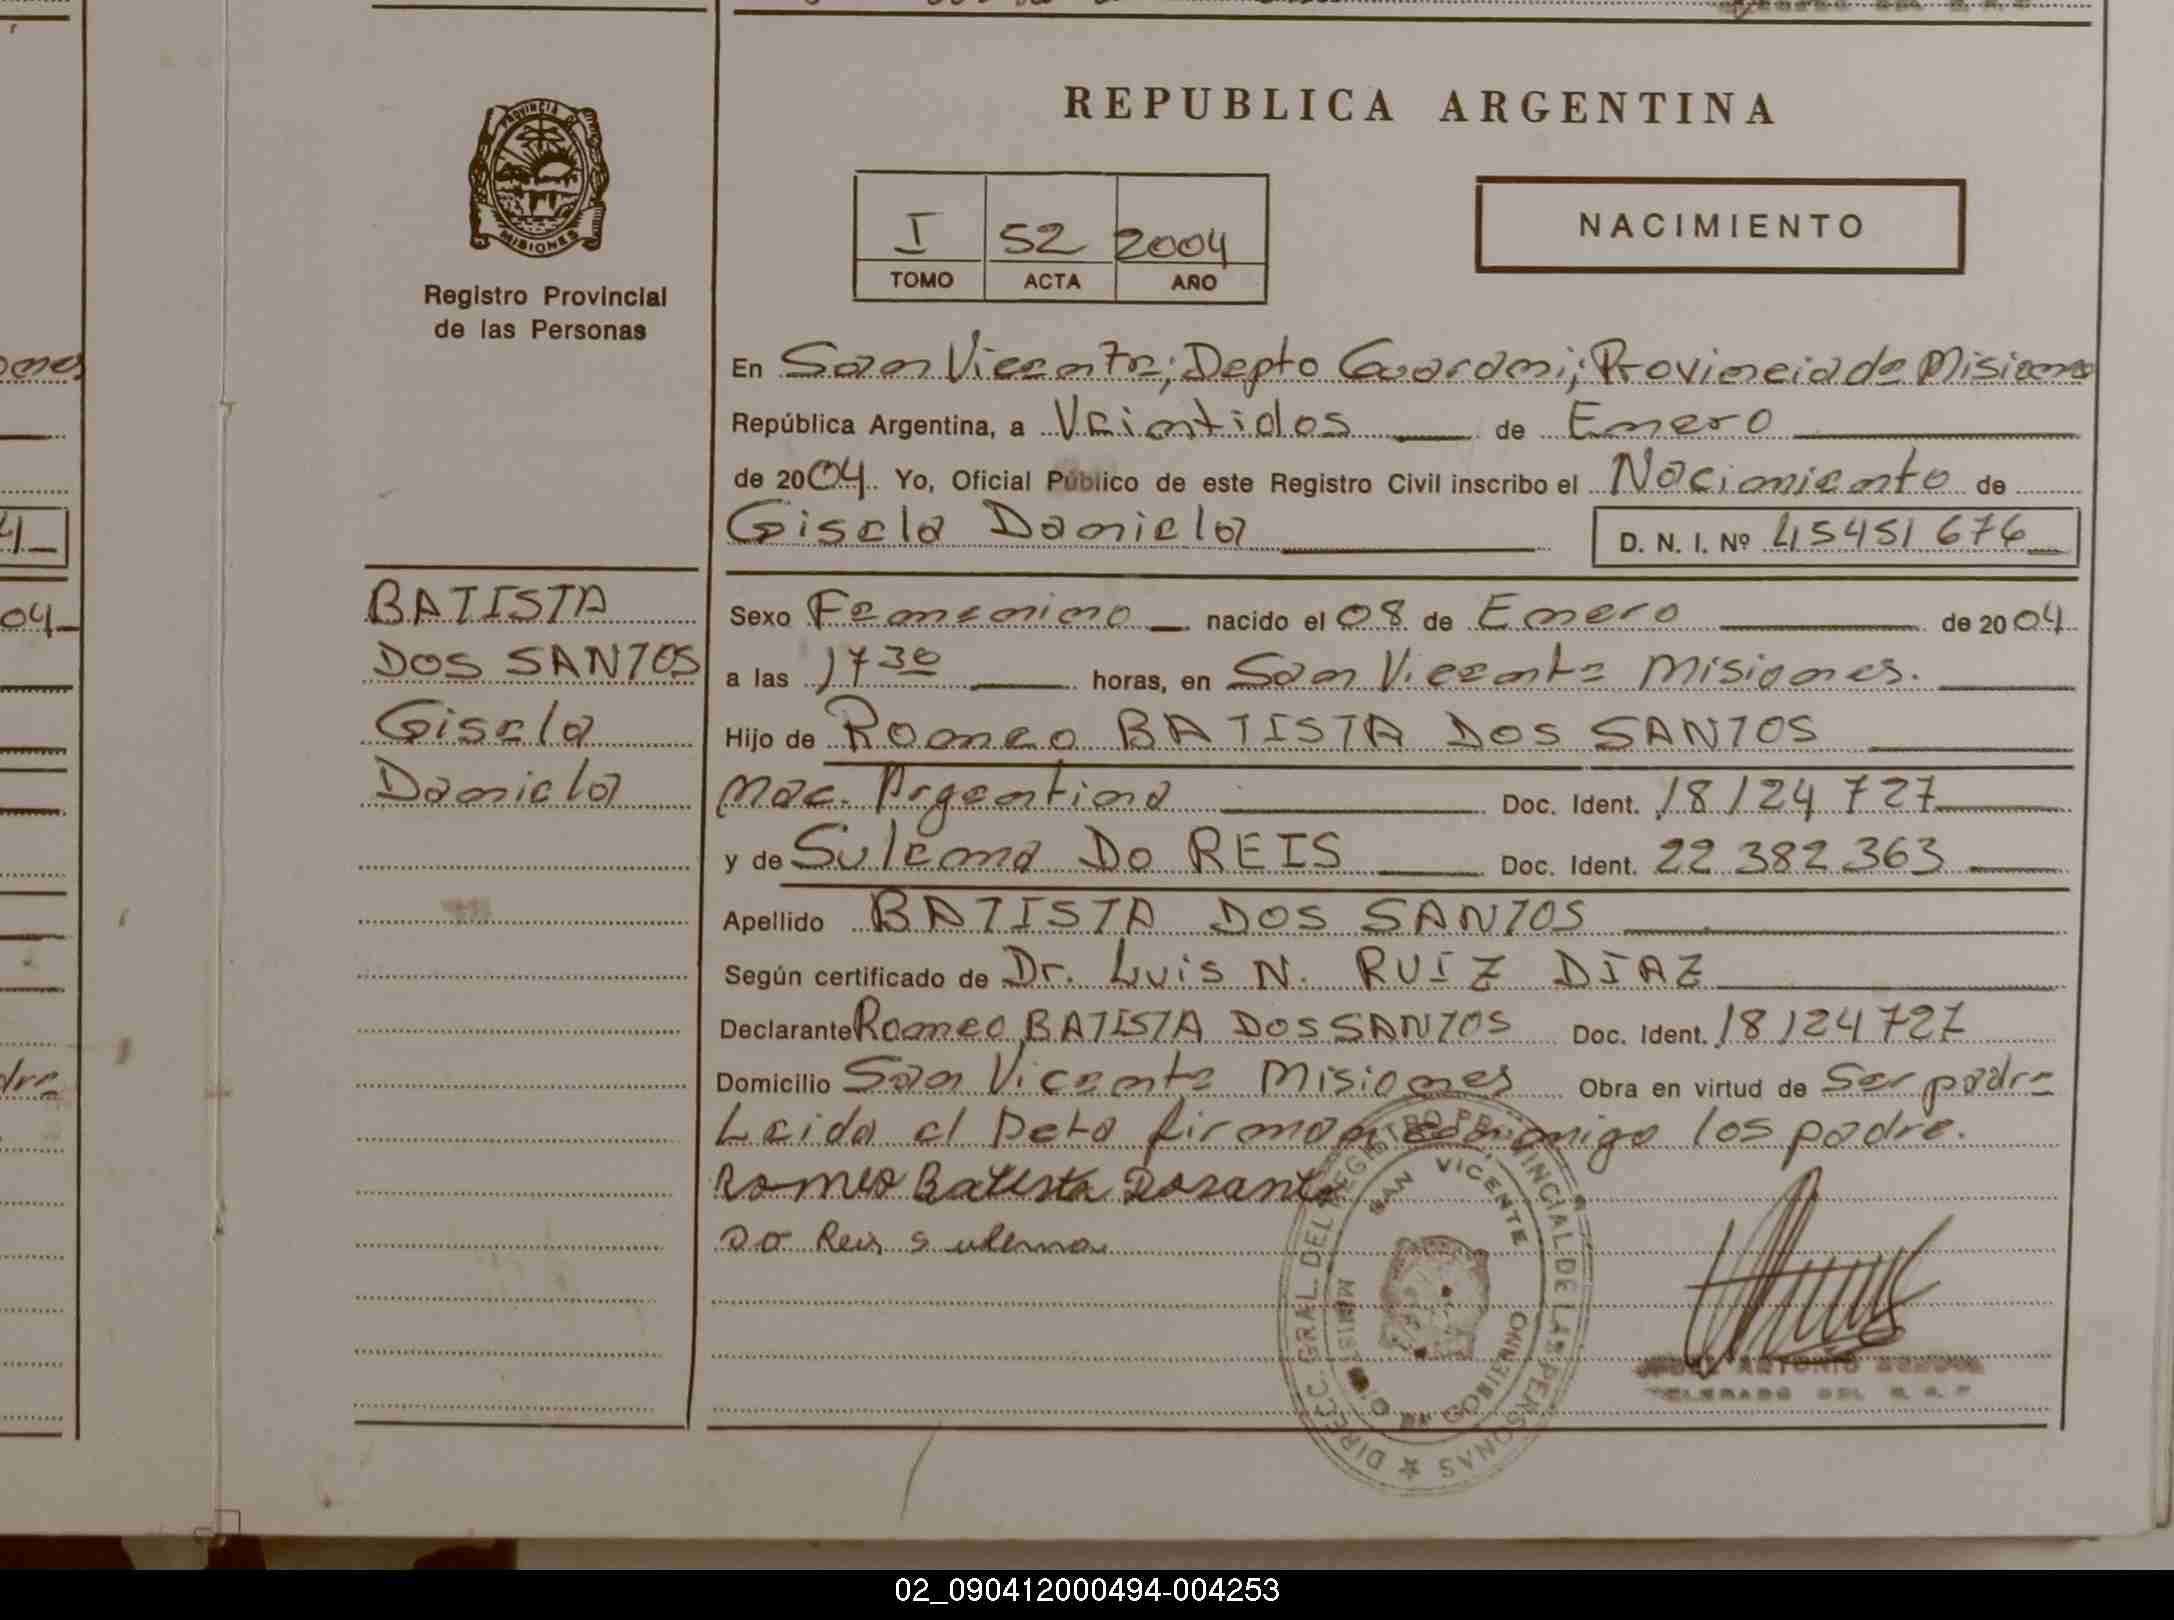 REPUBLICA ARGENTINA
PROVINCIA DE MISIONES
Registro Provincial
de las Personas
I 52 2004
TOMO ACTA AÑO
NACIMIENTO
En San Vicente; Depto Guarani; Provincia de Misiones
República Argentina, a Veintidos de Enero
de 2004. Yo, Oficial Público de este Registro Civil inscribo el Nacimiento de
Gisela Daniela D. N. I. Nº 45451676
BATISTA
DOS SANTOS
Gisela
Daniela
Sexo Femenino nacido el 08 de Enero de 2004
a las 1730 horas, en San Vicente Misiones.
Hijo de Romeo BATISTA DOS SANTOS
Nac. Argentina Doc. Ident. 18124727
y de Sulema Do REIS Doc. Ident. 22 382 363
Apellido BATISTA DOS SANTOS
Según certificado de Dr. Luis N. RUIZ DIAZ
Declarante Romeo BATISTA DOS SANTOS Doc. Ident. 18124727
Domicilio San Vicente Misiones Obra en virtud de Ser padre
Leida el Acta firman conmigo los padre.
Romeo Batista Dosanto
Do Reis Sulema
DIRECC. GRAL. DEL REGISTRO PROVINCIAL DE LAS PERSONAS
SAN VICENTE
GOBIERNO
ANTONIO
DEL R. P.
ones
04
dre
02_090412000494-004253